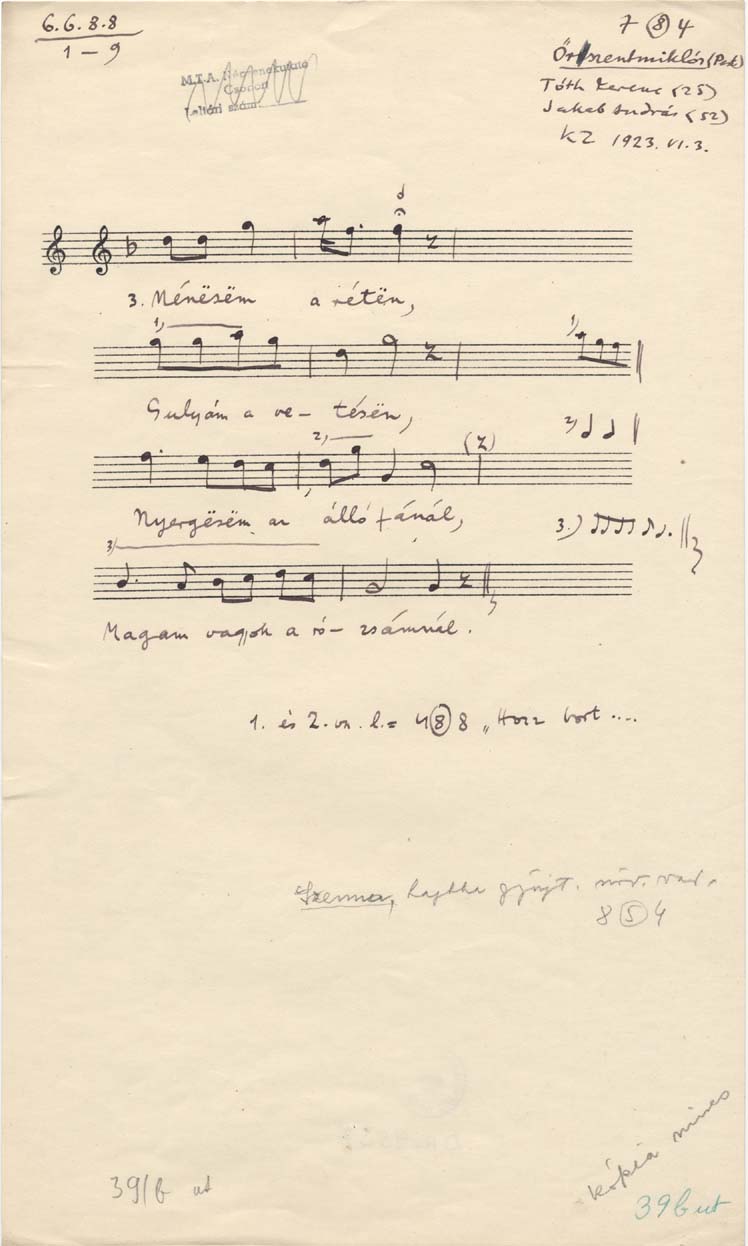 6.6.8.8
1 – 9
7 (8) 4
Őrszentmiklós (Pest)
Tóth Ferenc (25)
Jakab András (52)
KZ 1923. VI. 3.
M.T.A. Népzenekutató
Csoport
Leltári szám:
3. Ménësëm a rétën,
1)
1)
Gulyám a ve– tésën,
2)
2)
(z)
Nyergësëm az álló fánál,
3.)
3)
Magam vagyok a ró– zsámnál.
1. és 2. vsz. l. = 4 (8) 8 „Hozz bort ....
Szenna, Lajtha gyűjt. var.
8 (5) 4
kópia nincs
39/b ut
39 b ut